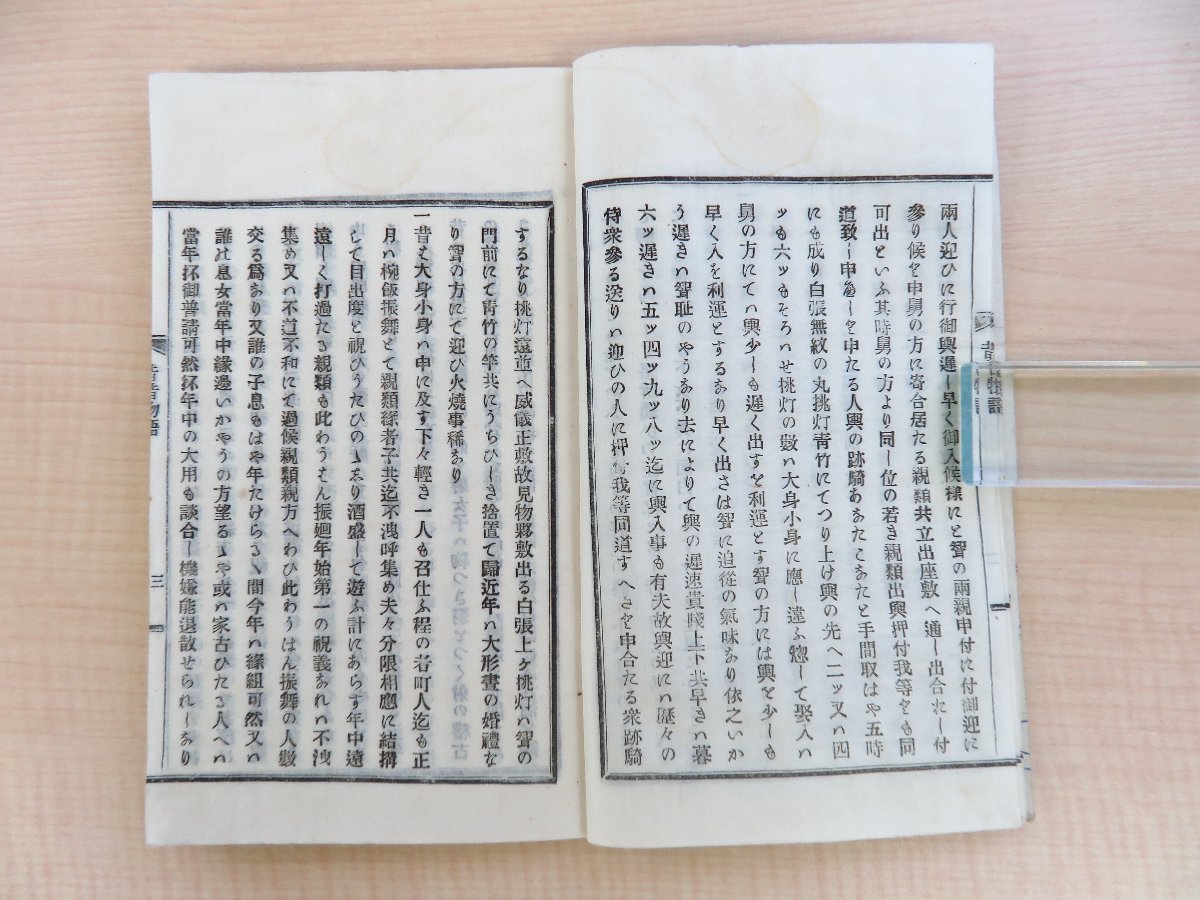 兩人迎ひに行御輿遲し早く御入候樣にと聟の兩親申付に付御迎に
參り候と申舅の方に寄合居たる親類共立出座敷へ通し出合たし付
可出といふ其時舅の方より同し位の若き親類出輿押付我等をも同
道致し申をと申たる人輿の跡騎あたこあたと手間取はや五時
にも成り白張無紋の丸挑灯青竹にてつり上け輿の先へ二ッ又ハ四
ッも六ッもそろハせ挑灯の數ハ大身小身に應し違ふ惣して娶入ハ
舅の方にてハ輿少しも遲く出すを利運とす聟の方には輿を少しも
早く入を利運とするあり早く出さは聟に追從の氣味あり依之いか
う遲きハ聟耻のやうあり去によりて輿の遲速貴賤上下共早きハ暮
六ッ遲きハ五ッ四ッ九ッ八ッ迄に輿入事も有夫故輿迎にハ歷々の
侍衆參る送りハ迎ひの人に押付我等同道すへさを申合たる衆跡騎
するなり挑灯遠近へ威儀正敷故見物夥敷出る白張上ヶ挑灯ハ聟の
門前にて青竹の竿共にうちひしき捨置て歸近年ハ大形晝の婚禮な
り聟の方にて迎ひ火燒事稀あり
一昔ハ大身小身ハ申に及す下々輕き一人も召仕ふ程の者町人迄も正
月ハ椀飯振舞とて親類緣者子共迄不洩呼集め夫々分限相應に結搆
して目出度と祝ひうたひのゝあり酒盛して遊ふ計にあらす年中遠
遠しく打過たる親類も此わうはん振廻年始第一の祝義あれハ不洩
集め又ハ不道不和にて過候親類親方へわひ此わうはん振舞の人數
交る爲あり又誰の子息もはや年たけらるゝ間今年ハ緣組可然又ハ
誰は息女當年中緣邊いかやうの方望るゝや或ハ家古ひたる人へハ
當年抔御普請可然抔年中の大用も談合し機嫌能退散せられしあり
昔昔物語
三